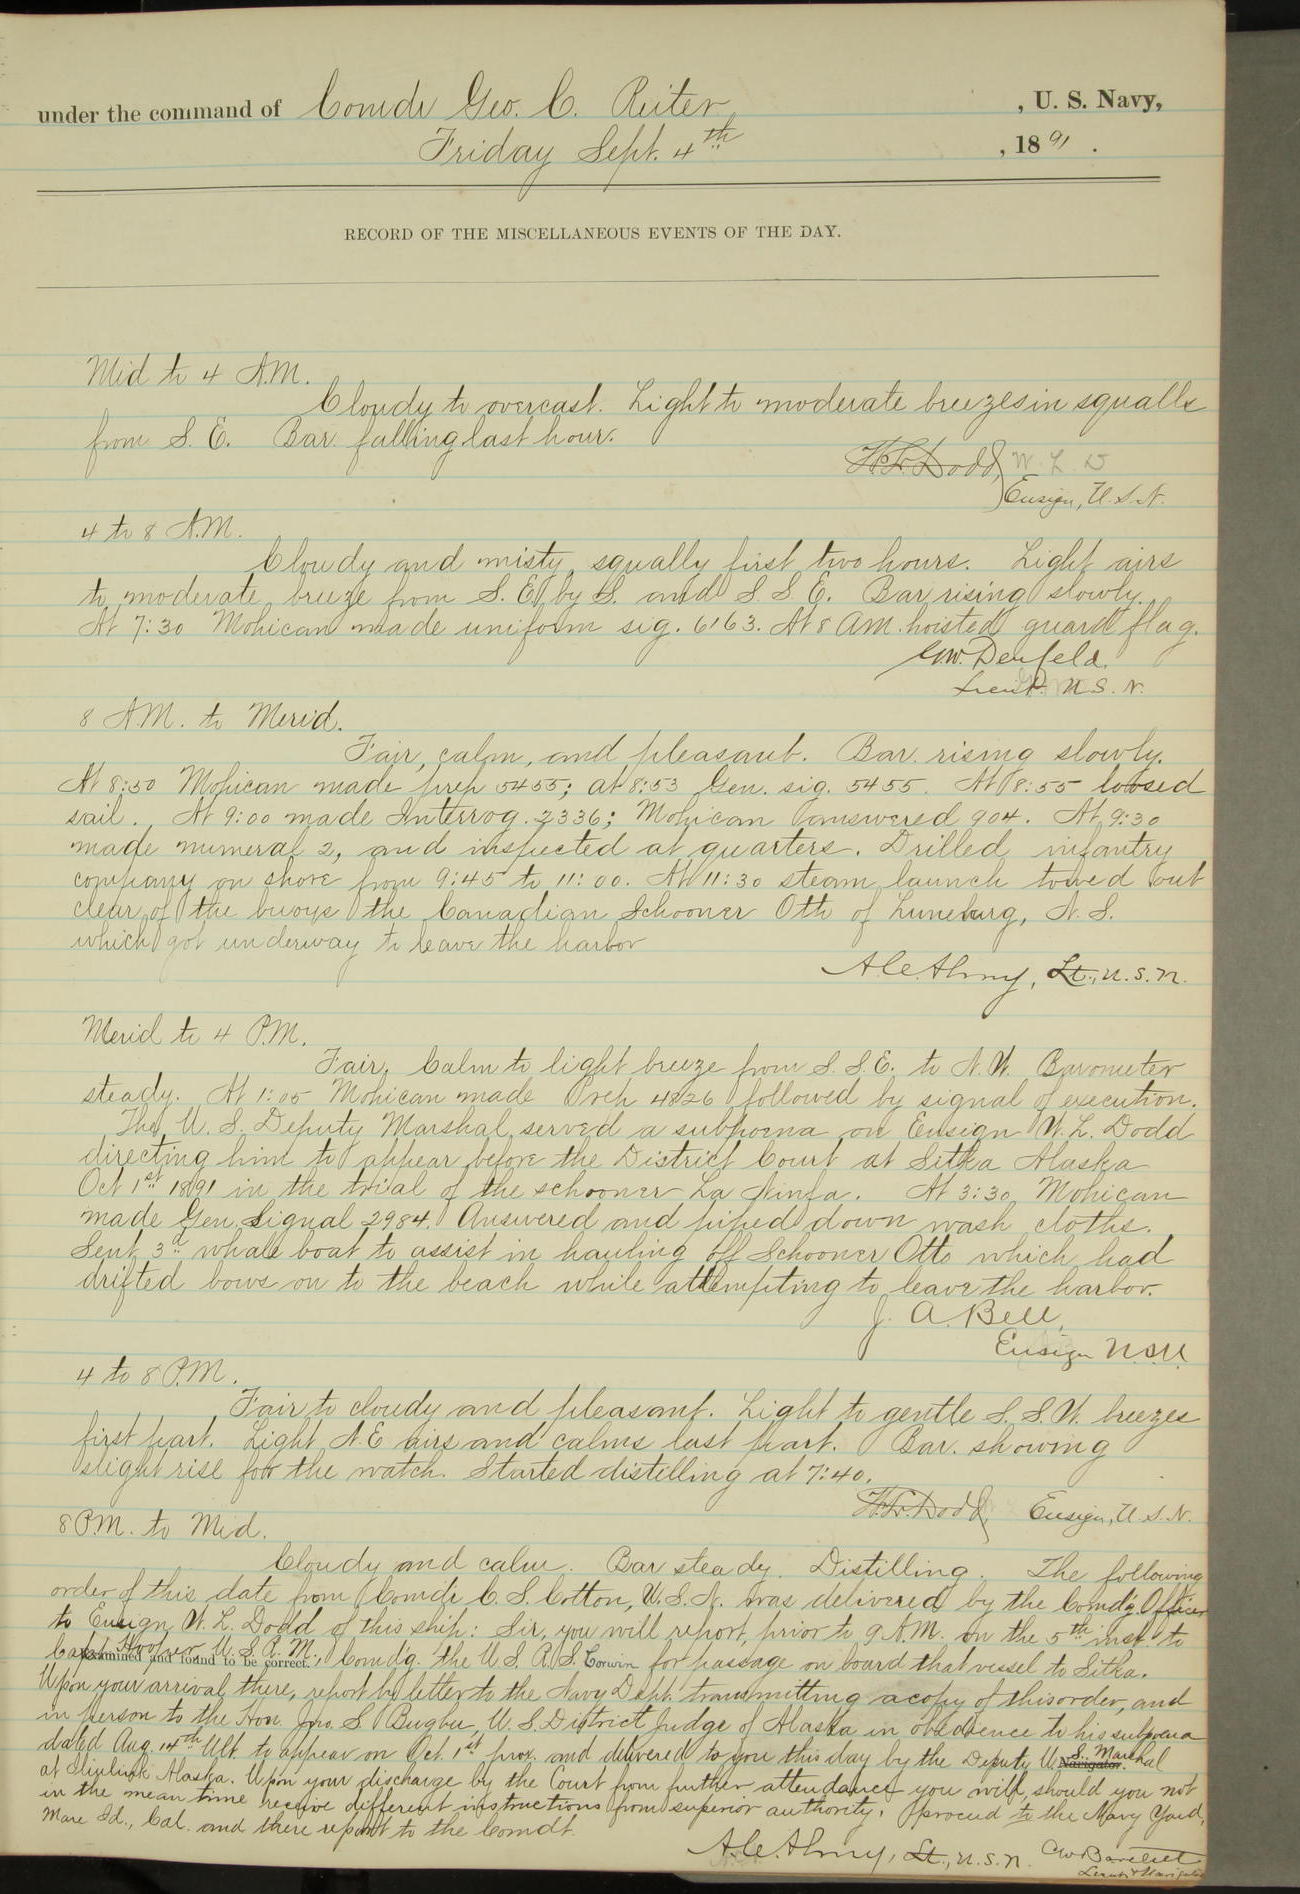 under the command of Comdr Geo. C. Reiter, U. S. Navy,
Friday Sept. 4th, 1891.
RECORD OF THE MISCELLANEOUS EVENTS OF THE DAY.
Mid to 4 A.M.
Cloudy to overcast. Light to moderate breezes in squalls
from S. E. Bar. falling last hour.
W. L. Dodd, W. L. D
Ensign, U. S. N.
4 to 8 A.M.
Cloudy and misty, squally first two hours. Light airs
to moderate breeze from S. E. by S. and S. S. E. Bar rising slowly.
At 7:30 Mohican made uniform sig. 6163. At 8 A.M. hoisted guard flag.
G.W. Denfeld.
Lieut. U. S. N.
8 A.M. to Merid.
Fair, calm, and pleasant. Bar. rising slowly.
At 8:50 Mohican made prep 5455; at 8:53 Gen. sig. 5455. At 8:55 loosed
sail. At 9:00 made Interrog. 2336; Mohican answered 904. At 9:30
made numeral 2, and inspected at quarters. Drilled infantry
company on shore from 9:45 to 11:00. At 11:30 steam launch towed out
clear of the buoys the Canadian Schooner Otto of Lunenburg, N. S.
which got underway to leave the harbor
A. C. Almy, Lt., U. S. N.
Merid to 4 P.M.
Fair. Calm to light breeze from S. S. E. to N. W. Barometer
steady. At 1:05 Mohican made Prep 4826 followed by signal of execution.
The U. S. Deputy Marshal served a subpoena on Ensign W. L. Dodd
directing him to appear before the District Court at Sitka Alaska
Oct 1st 1891 in the trial of the schooner La Ninfa. At 3:30 Mohican
made Gen. Signal 2984. Answered and piped down wash cloths.
Sent 3d whale boat to assist in hauling off Schooner Otto which had
drifted bows on to the beach while attempting to leave the harbor.
J. A. Bell,
Ensign U.S.N.
4 to 8 P.M.
Fair to cloudy and pleasant. Light to gentle S. S. W. breezes
first part. Light N. E airs and calms last part. Bar. showing
slight rise for the watch. Started distilling at 7:40.
W. L. Dodd, Ensign, U. S. N.
8 P.M. to Mid.
Cloudy and calm. Bar steady. Distilling. The following
order of this date from Comdr C. S. Cotton, U. S. N. was delivered by the Comd'g Officer
to Ensign W. L. Dodd of this ship: Sir, you will report, prior to 9 A.M. on the 5th inst. to
Capt. Hooper U. S. R. M., Comd'g. the U. S. R. S. Corwin for passage on board that vessel to Sitka.
Examined and found to be correct.
Upon your arrival there, report by letter to the Navy Dept. transmitting a copy of this order, and
in person to the Hon. Jno. S. Bugbee, U. S. District Judge of Alaska in obedience to his subpoena
dated Aug. 14th Ult. to appear on Oct. 1st prox. and delivered to you this day by the Deputy U. S. Marshal
Navigator.
at Iliuliuk Alaska. Upon your discharge by the Court from further attendance you will, should you not
in the mean time receive different instructions from superior authority, proceed to the Navy Yard,
Mare Id., Cal. and there report to the Comdt.
A. C. Almy, Lt., U. S. N. C W Bartlett
Lieut & Navigator